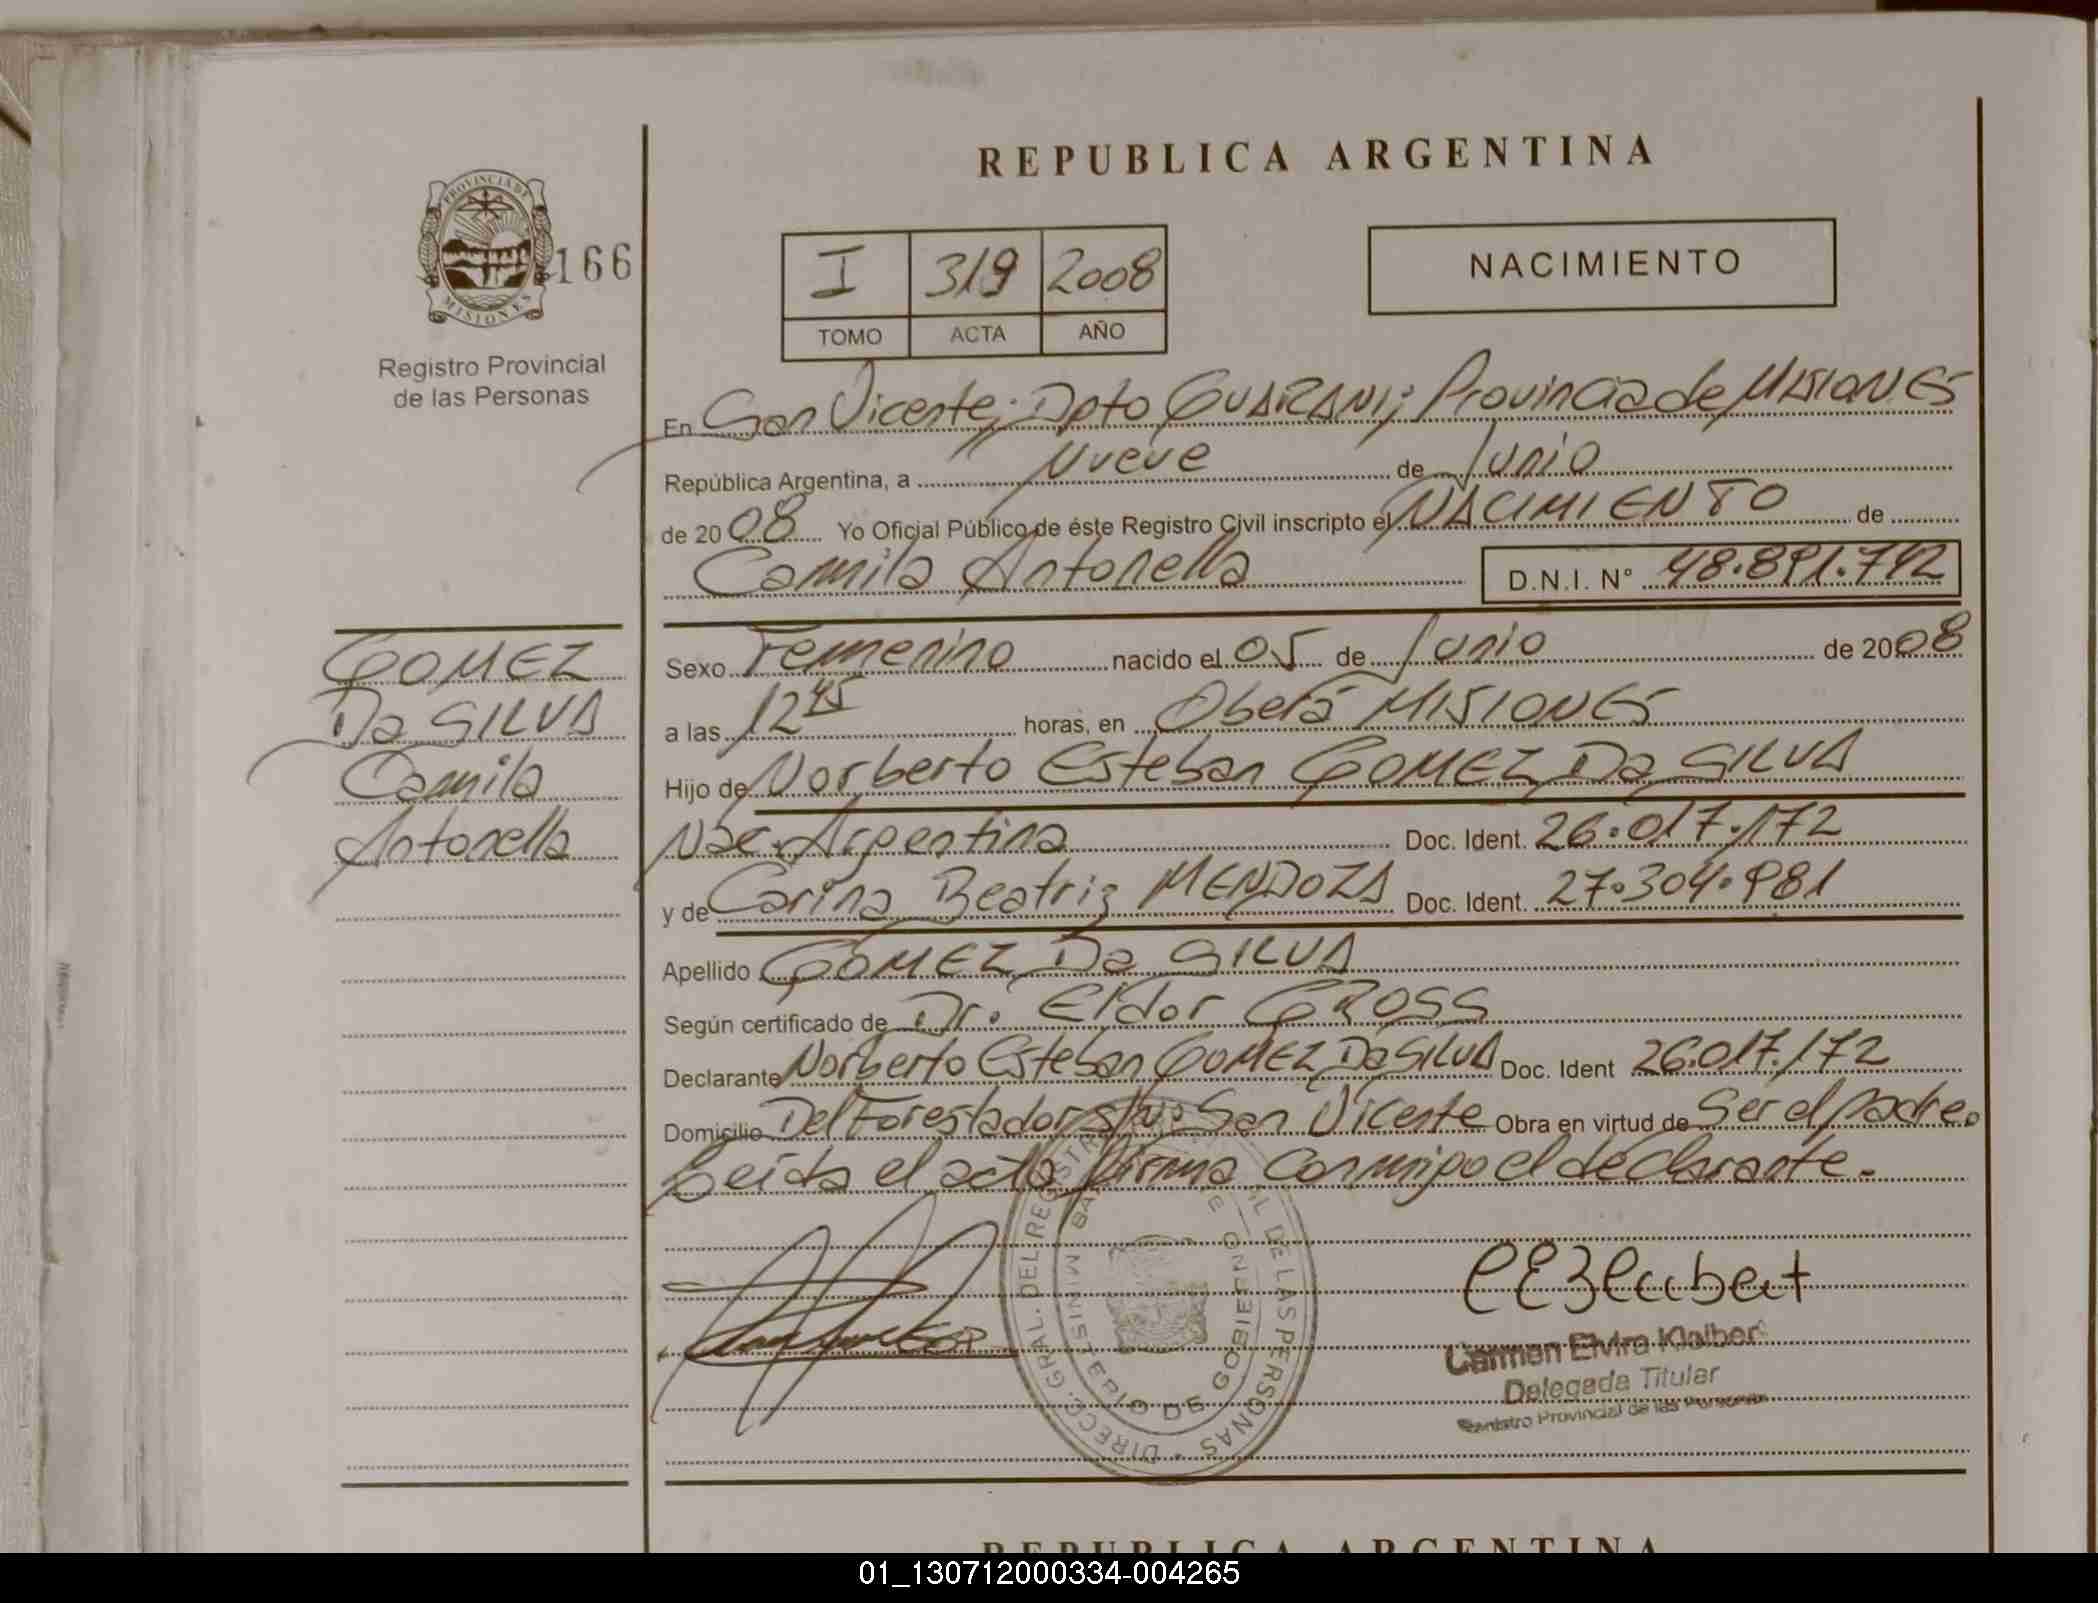 REPUBLICA ARGENTINA
PROVINCIA DE
MISIONES
166
Registro Provincial
de las Personas
I 319 2008
TOMO ACTA AÑO
NACIMIENTO
En San Vicente; Dpto GUARANI; Provincia de MISIONES
República Argentina, a Nueve de Junio
de 2008 Yo Oficial Público de éste Registro Civil inscripto el NACIMIENTO de
Camila Antonella D.N.I. Nº 48.891.742
GOMEZ
Da SILVA
Camila
Antonella
Sexo Femenino nacido el 05 de Junio de 2008
a las 12 45 horas, en Oberá MISIONES
Hijo de Norberto Esteban GOMEZ Da SILVA
Nac. Argentina Doc. Ident. 26.017.172
y de Carina Beatriz MENDOZA Doc. Ident. 27.304.981
Apellido GOMEZ Da SILVA
Según certificado de Dr. Eldor GROSS
Declarante Norberto Esteban GOMEZ Da SILVA Doc. Ident 26.017.172
Domicilio Del Forestador s/Nº San Vicente Obra en virtud de Ser el padre.
Leída el acta firma conmigo el declarante.
DIRECC. GRAL. DEL REGISTR IL DE LAS PERSONAS
MINISTERIO DE GOBIERNO
Carmen Elvira Klaiber
Delegada Titular
Registro Provincial de las Personas
REPUBLICA ARGENTINA
01_130712000334-004265